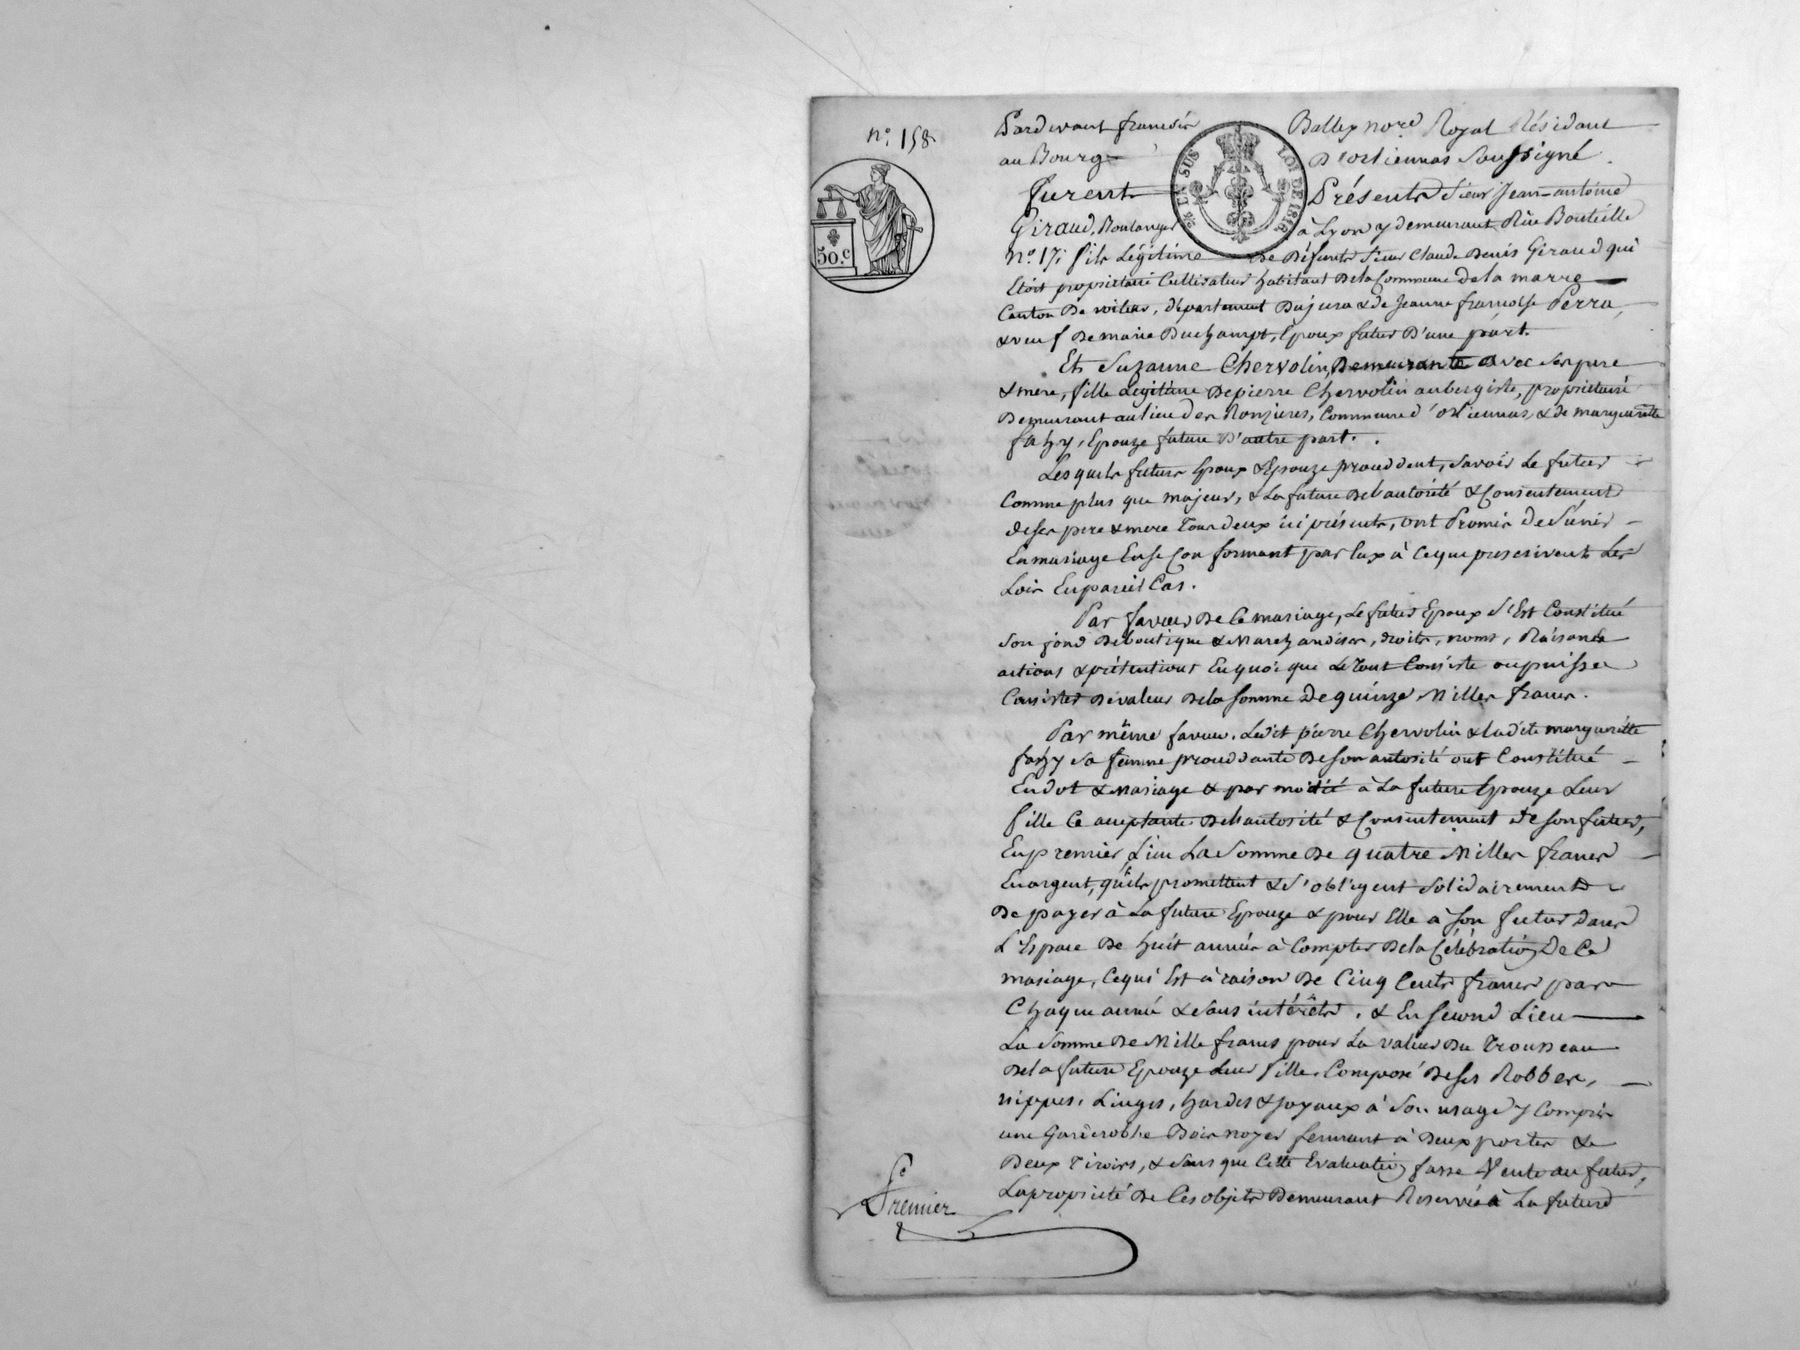 n.° 158
50.c
EN SUS LOI DE 1816
Pardevant francois Ballex nore Royal Résidant
au Bourg D'ortiennas Soussigné
Furent Présents Sieur Jean-antoine
Giraud, Boulanger à Lyon y demeurant Rüe Bouteille
n.° 17, fils Légitime De Défunts Sieur Claude Denis Giraud qui
Etoit propriétaire Cultivateur habitant De la Commune de la marre
Canton De voiteur, département Du jura & de Jeanne françoise Perra,
& veuf De marie Duchampt, Epoux futur D'une part.
Et Suzanne Chervolin, Demeurante avec Ses pere
& mere, fille Légitime De pierre Chervolin aubergiste, propriétaire
Demeurant au lieu des Ronzieres, Commune d'ortiennas, & de margueritte
fahy, Epouze future D'autre part.
Lesquels futurs Epoux & Epouze proceddent, Savoir Le futur
Comme plus que majeur, & La future De l'autorité & Consentement
de ses pere & mere Tous deux ici présents, ont Promis de S'unir
En mariage En se Conformant par Eux à Ce que prescrivent Les
Loix En pareil Cas.
Par faveur De Ce mariage, Le futur Epoux S'Est Constitué
Son fond De boutique & Marchandises, droits, noms, Raisons
actions & prétentions En quoi que Le Tout Consiste ou puisse
Consister De valeur De la Somme De quinze Milles francs.
Par même faveur, Ledit pierre Chervolin & ladite margueritte
fahy Sa femme proceddante De Son autorité ont Constitué
En dot & Mariage & par moitié à La future Epouze Leur
fille Ce acceptante De l'autorité & Consentement de Son futur,
En premier Lieu La Somme De quatre Milles francs
En argent, qu'ils promettent & S'obligent Solidairement
De payer à La future Epouze & pour Elle à Son futur dans
L'Espace De huit années à Compter De la Célébration De Ce
mariage, Ce qui Est à raison De Cinq Cents francs par
Chaque année & Sans intérêts. & En Second Lieu
La Somme De Mille francs pour La valeur Du Trousseau
De la future Epouze Leur fille, Composé De Ses Robbes,
nippes, Linges, hardes & joyaux à Son usage y Compris
une Garderobbe Bois noyer fermant à Deux portes &
Deux Tiroirs, & Sans que Cette Evaluation fasse Vente au futur,
La propriété De Ces objets Demeurant Reservée à La future
Premier